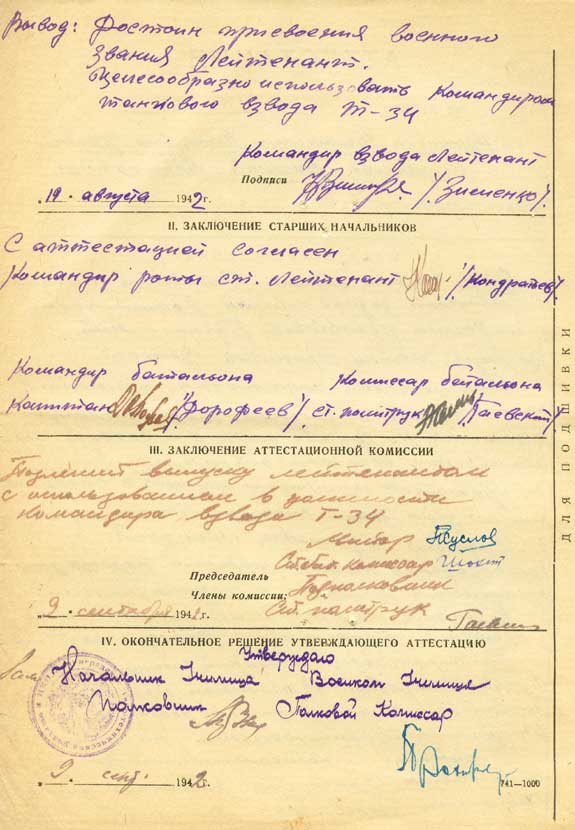 Вывод: Достоин присвоения военного
звания Лейтенант.
Целесообразно использовать командиром
танкового взвода Т-34
Командир взвода Лейтенант
Подписи /Зименко/.
„19„ августа 1942 г.
II. ЗАКЛЮЧЕНИЕ СТАРШИХ НАЧАЛЬНИКОВ
С аттестацией согласен
Командир роты ст. Лейтенант /Кондратьев/
Командир батальона Комиссар батальона
Капитан /Дорофеев/ ст. политрук /Гаевский/
III. ЗАКЛЮЧЕНИЕ АТТЕСТАЦИОННОЙ КОМИССИИ
Подлежит выпуску лейтенантом
с использованием в должности
командира взвода Т-34
Майор
Ст. бат. комиссар
Председатель
Подполковник
Члены комиссии:
Ст. политрук
„2„ сентября 1942 г.
IV. ОКОНЧАТЕЛЬНОЕ РЕШЕНИЕ УТВЕРЖДАЮЩЕГО АТТЕСТАЦИЮ
Утверждаю
Начальник Училища Военком Училища
Полковник Полковой Комиссар
„2„ сент. 1942 г.
741—1000
ДЛЯ ПОДШИВКИ